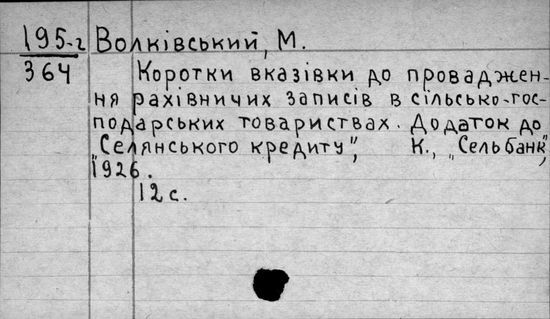 195-г Волківський, М.
364
Коротки вказівки до проваджен-
ня рахівничих записів в сільсько-гос-
подарських товариствах. Додаток до
"Селянського кредиту", К., "Сельбанк",
1926.
12 с.